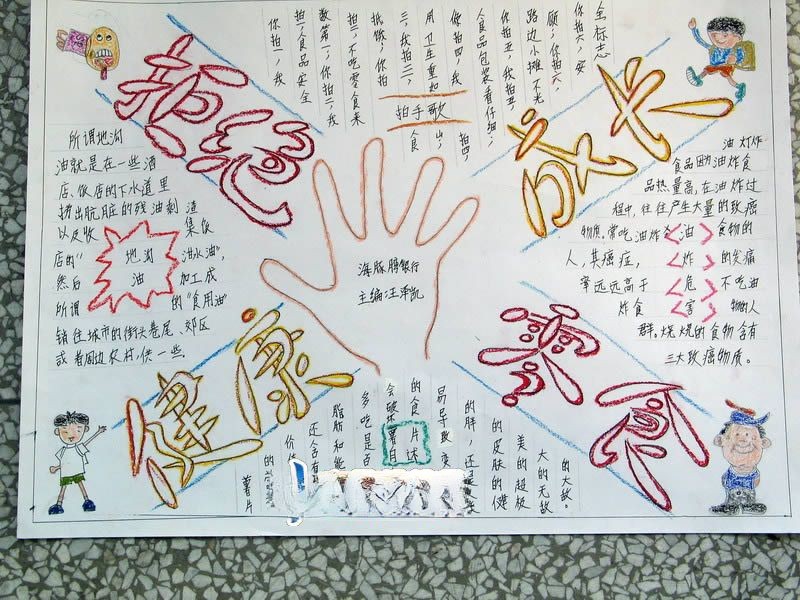 拒绝
成长
健康
零食
你拍一，我
拍一，食品安全
数第一；你拍二，我
拍二，不吃零食来
抵饿；你拍
三，我拍三，
用卫生重如
你拍四，我
拍四，
食品包装看仔细；
你拍五，我拍五，
路边小摊不光
顾；你拍六，
你拍六，安
全标志
拍手歌
所谓地沟
油就是在一些酒
店、饭店的下水道里
捞出肮脏的残油剩渣
以及收集饭
店的“泔水油”，
然后加工成
所谓的“食用油”
销往城市的街头巷尾、郊区
或者周边农村，供一些
地沟
油
海豚牌银行
主编：汪泽凯
油炸
食品因油炸食
品热量高，在油炸过
程中，往往产生大量的致癌
物质。常吃油炸食物的
人，其癌症，的发病
率远远高于不吃油
炸食物的人
群。烧烧的食物含有
三大致癌物质。
油
炸
危
害
薯片
的
价值
还含有
脂肪和能
多吃是否
会破坏
的食
易导致
的胖，还
的皮肤的健
美的超级
大的无敌
的大敌。
薯片
自述